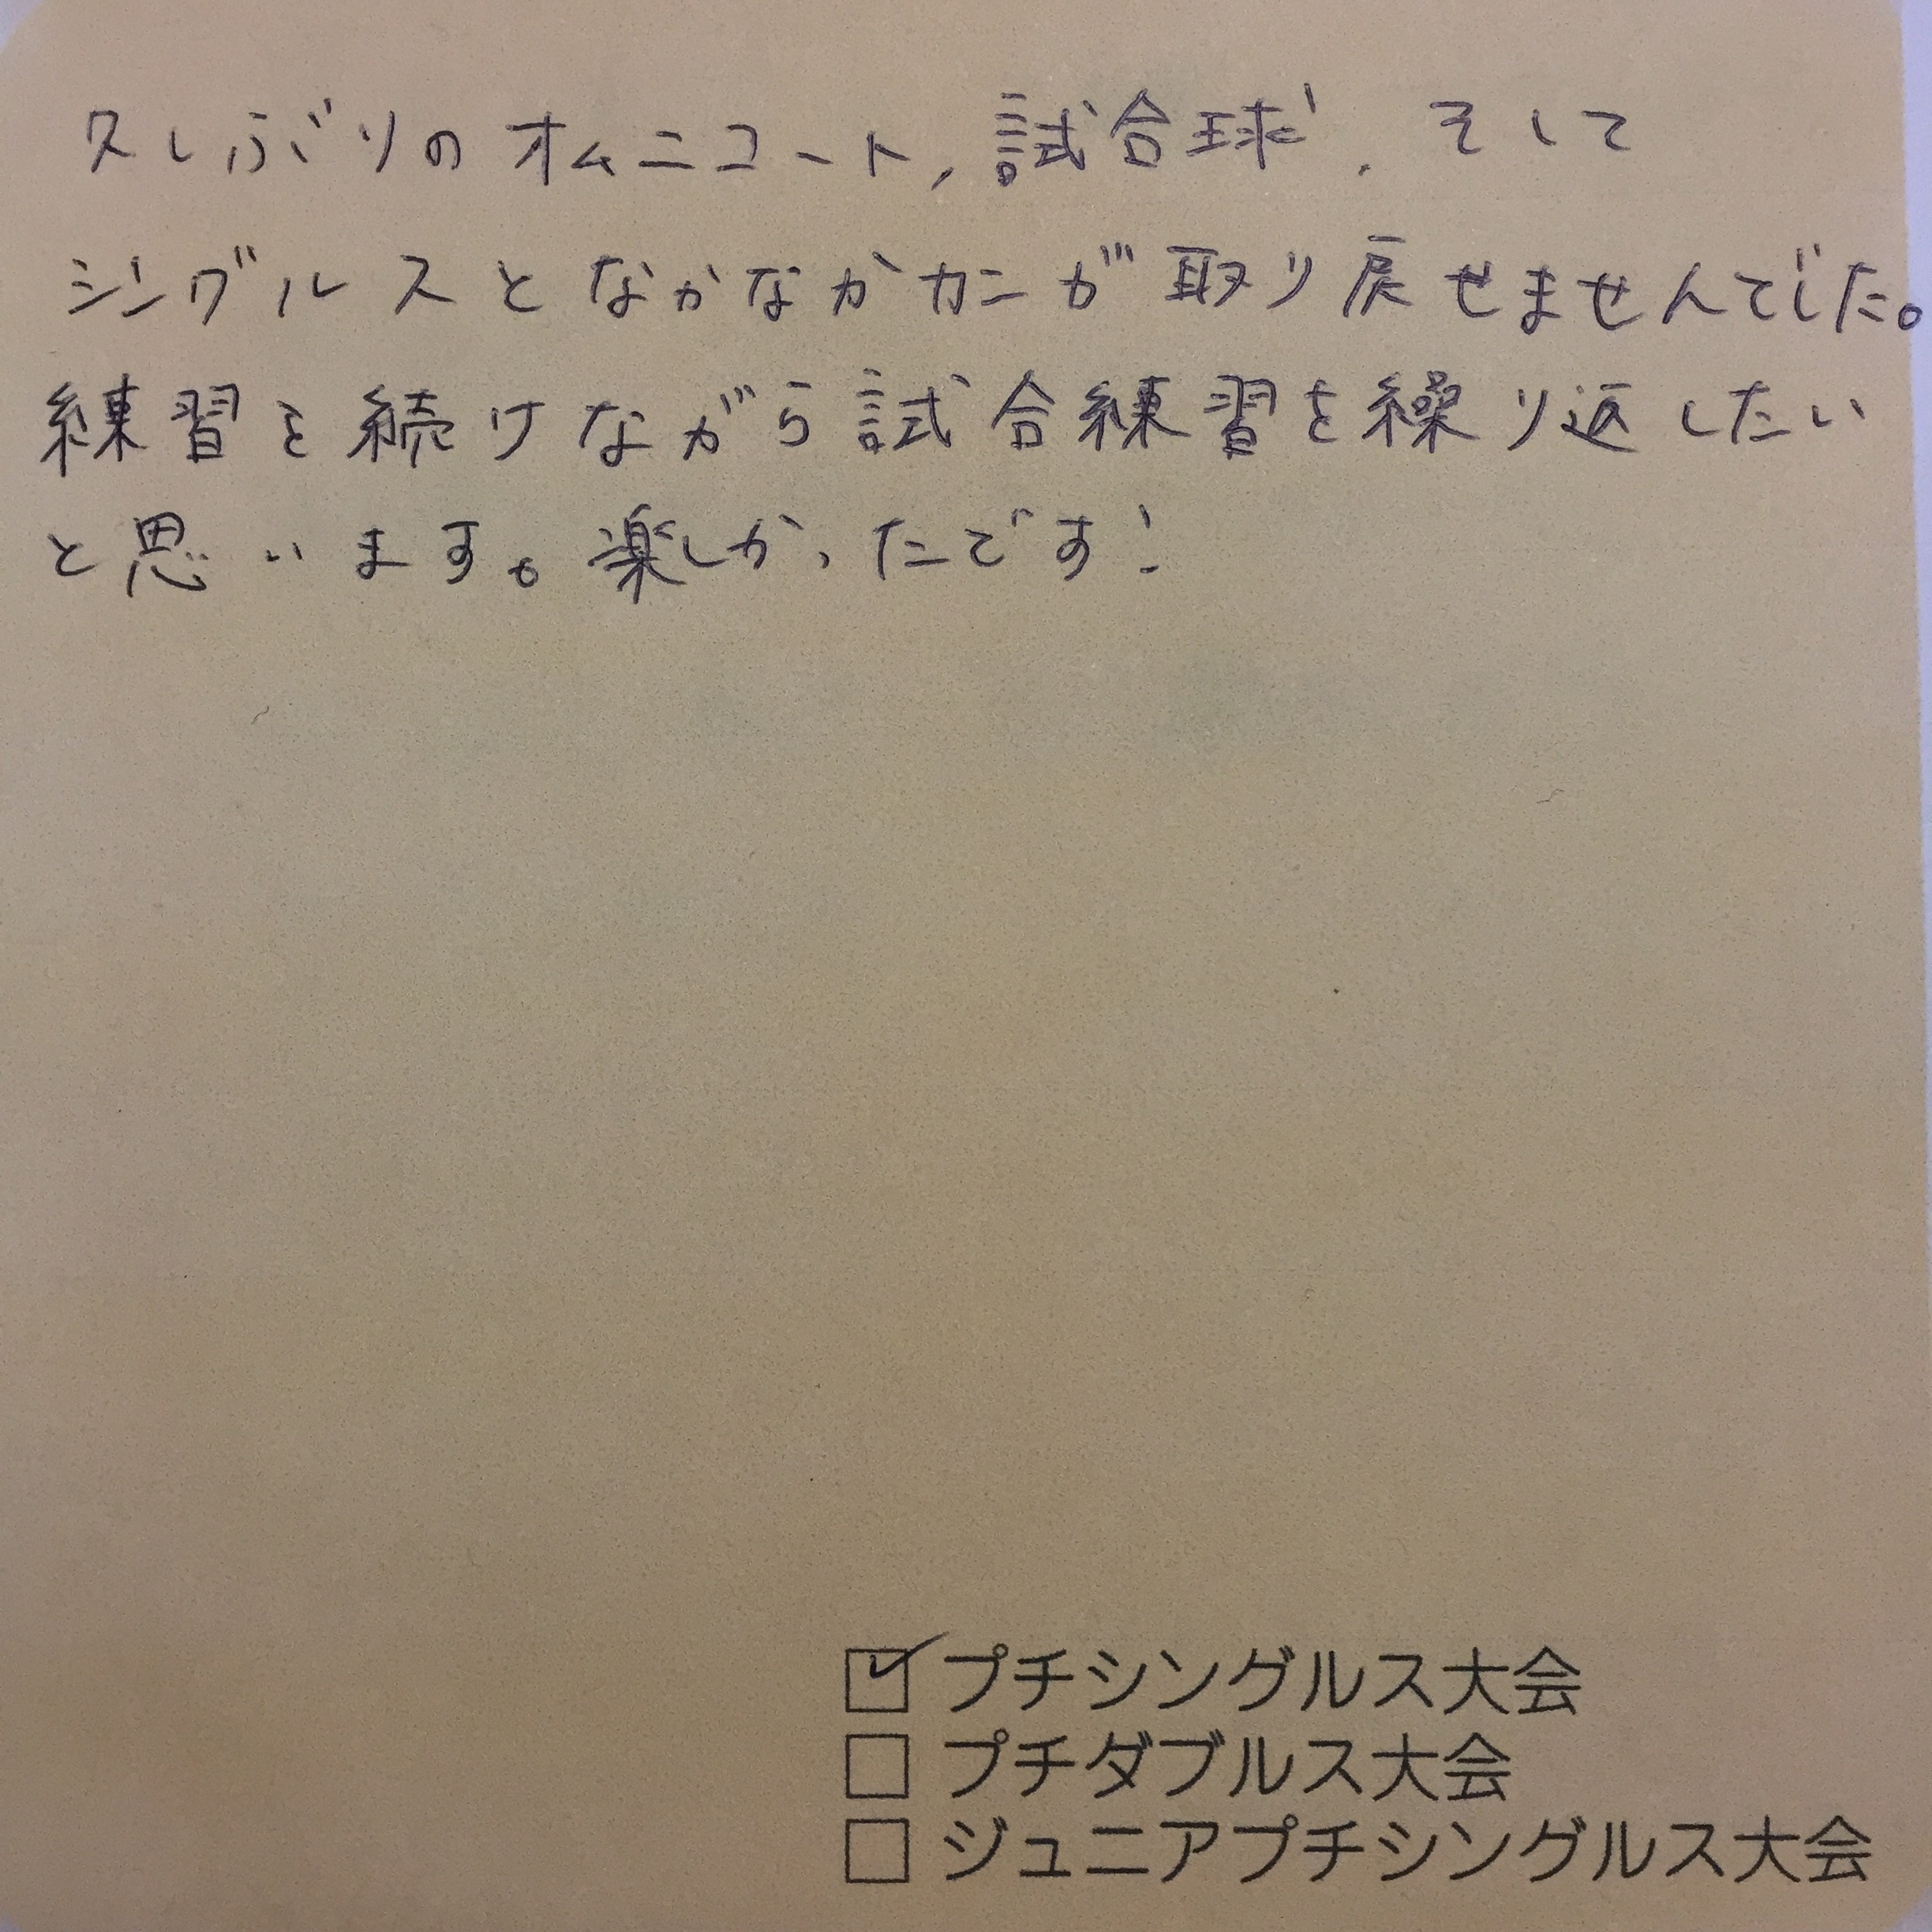 久しぶりのオムニコート,試合球,そして
シングルスとなかなかカンが取り戻せませんでした。
練習を続けながら試合練習を繰り返したい
と思います。楽しかったです!
☑プチシングルス大会
□プチダブルス大会
□ジュニアプチシングルス大会